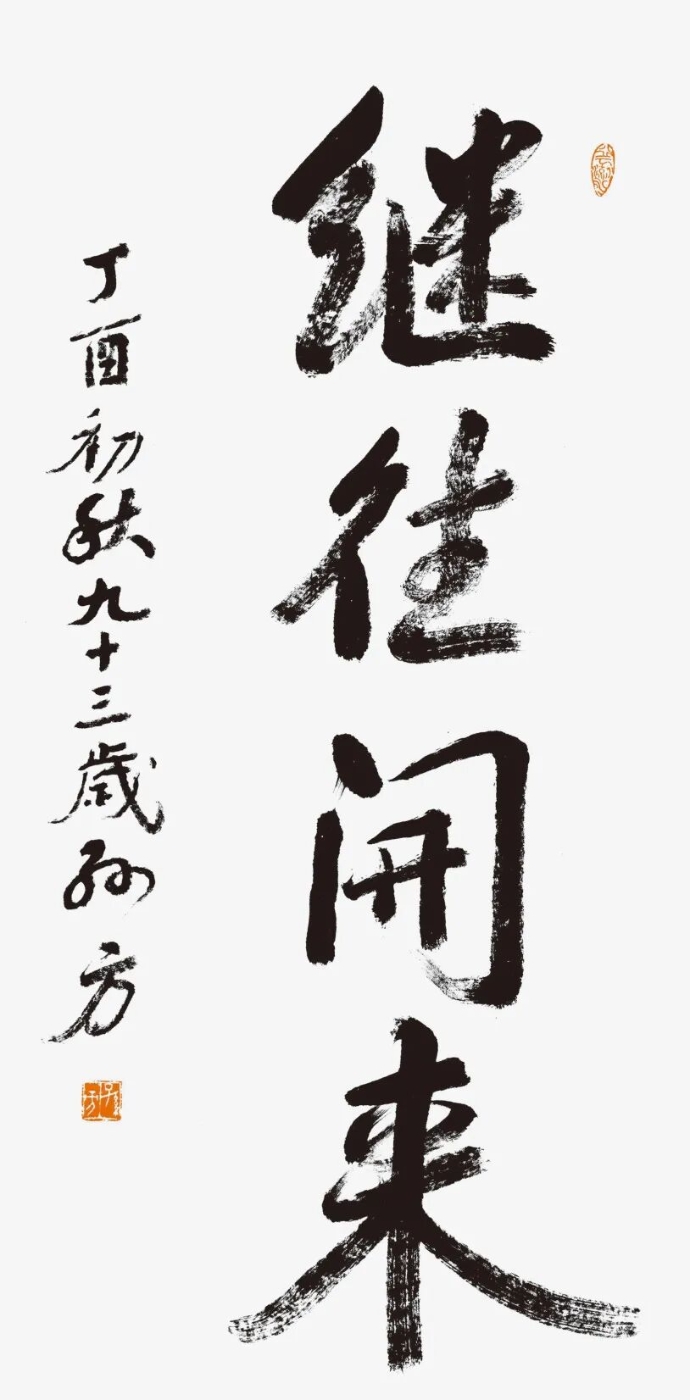 继往开来
丁酉初秋九十三歳孙方